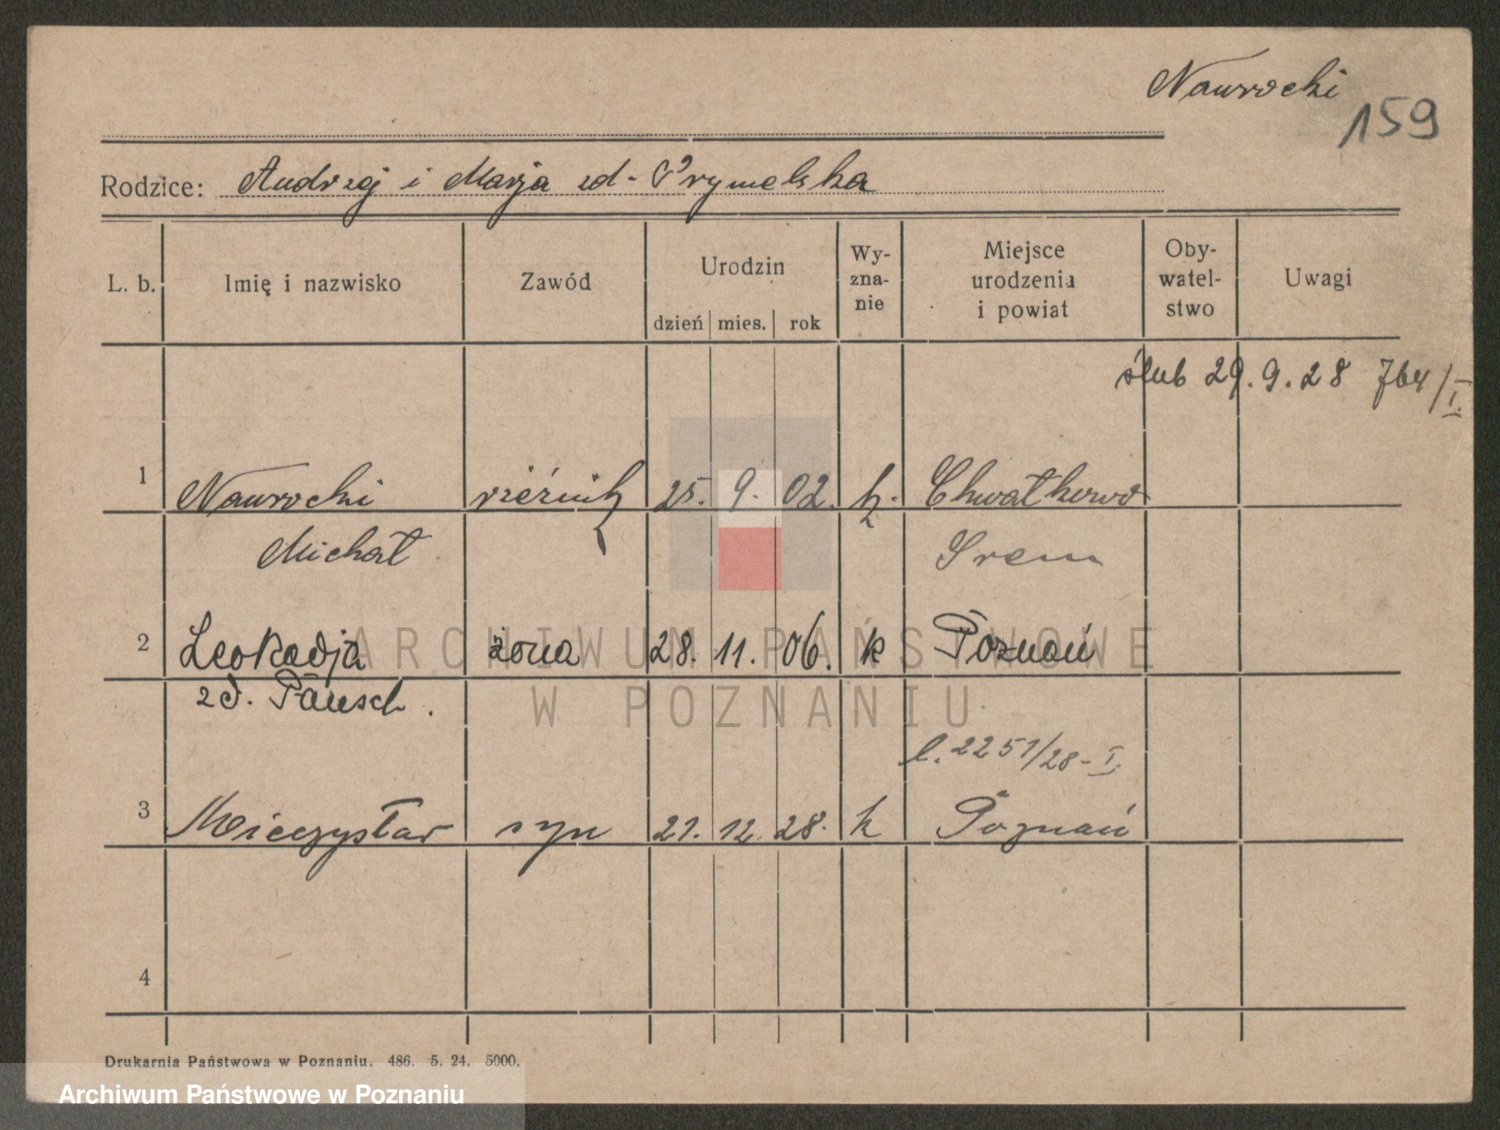 Nawrocki
159
Rodzice: Andrzej i Marja zd. Prymelska
L. b. Imię i nazwisko Zawód Urodzin dzień mies. rok Wy-zna-nie Miejsce urodzenia i powiat Oby-watel-stwo Uwagi
ślub 29.9.28 764/I.
1 Nawrocki rzeźnik 25. 9. 02. k. Chwałkowo
Michał Śrem
2 Leokadja żona 28. 11. 06. k Poznań
zd. Pausch.
l. 2251/28-I.
3 Mieczysław syn 21. 12. 28. k Poznań
4
Drukarnia Państwowa w Poznaniu. 486. 5. 24. 5000.
ARCHIWUM PAŃSTWOWE
W POZNANIU
Archiwum Państwowe w Poznaniu